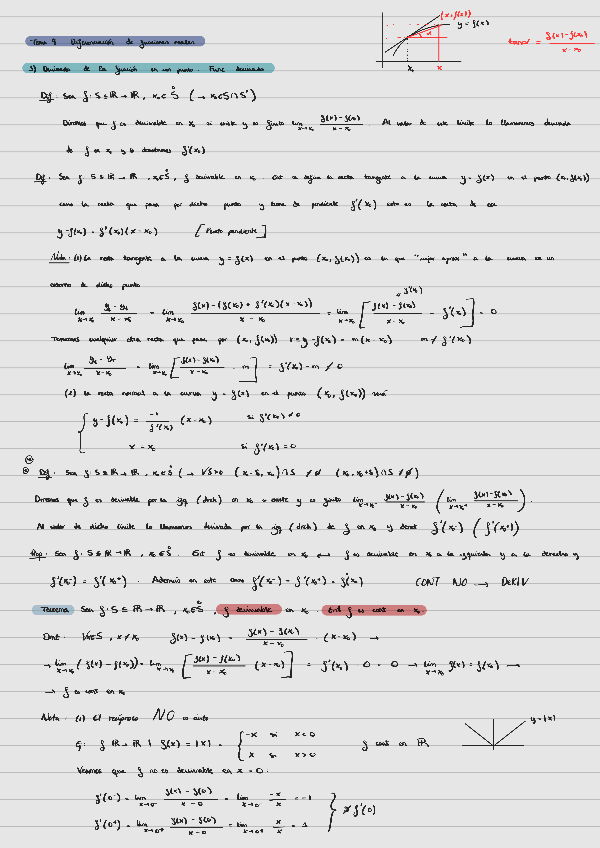 (x, f(x))
y = f(x)
x₀ x
tan α = (f(x) - f(x₀)) / (x - x₀)
Tema 9 Diferenciación de funciones reales
1) Derivada de la función en un punto. Func. derivada
Def: Sea f: S ⊆ ℝ → ℝ, x₀ ∈ S (→ x₀ ∈ S ∩ S')
Diremos que f es derivable en x₀ si existe y es finito lim x→x₀ (f(x) - f(x₀)) / (x - x₀). Al valor de este límite lo llamaremos derivada
de f en x₀ y lo denotamos f'(x₀)
Def: Sea f: S ⊆ ℝ → ℝ, x₀ ∈ S, f derivable en x₀. Ent se define la recta tangente a la curva y = f(x) en el punto (x₀, f(x₀))
como la recta que pasa por dicho punto y tiene de pendiente f'(x₀) esto es la recta de ec
y - f(x₀) = f'(x₀)(x - x₀) [Punto pendiente]
Nota: (1) La recta tangente a la curva y = f(x) en el punto (x₀, f(x₀)) es la que "mejor aprox" a la curva en un
entorno de dicho punto
lim x→x₀ / (x - x₀) = lim x→x₀ (f(x) - (f(x₀) + f'(x₀)(x - x₀))) / (x - x₀) = lim x→x₀ [(f(x) - f(x₀)) / (x - x₀) - f'(x₀)] = 0
Tomemos cualquier otra recta que pase por (x₀, f(x₀)) r ≡ y - f(x₀) = m(x - x₀) m ≠ f'(x₀)
lim x→x₀ / (x - x₀) = lim x→x₀ [(f(x) - f(x₀)) / (x - x₀) - m] = f'(x₀) - m ≠ 0
(2) la recta normal a la curva y = f(x) en el punto (x₀, f(x₀)) será
{ y - f(x₀) = -1 / f'(x₀) (x - x₀) si f'(x₀) ≠ 0
x = x₀ si f'(x₀) = 0
Def: Sea f: S ⊆ ℝ → ℝ, x₀ ∈ S (→ ∀δ>0 (x₀-δ, x₀) ∩ S ≠ ∅ (x₀, x₀+δ) ∩ S ≠ ∅)
Diremos que f es derivable por la izq (drch) en x₀ si existe y es finito lim x→x₀⁻ (f(x) - f(x₀)) / (x - x₀) (lim x→x₀⁺ (f(x) - f(x₀)) / (x - x₀)).
Al valor de dicho límite lo llamaremos derivada por la izq (drch) de f en x₀ y denot f'(x₀⁻) (f'(x₀⁺))
Prop: Sea f: S ⊆ ℝ → ℝ, x₀ ∈ S. Ent f es derivable en x₀ ⟺ f es derivable en x₀ a la izquierda y a la derecha y
f'(x₀⁻) = f'(x₀⁺). Además en este caso f'(x₀⁻) = f'(x₀⁺) = f'(x₀) CONT NO → DERIV
Teorema Sea f: S ⊆ ℝ → ℝ, x₀ ∈ S, f derivable en x₀. Ent f es cont en x₀
Dmt: ∀x∈S, x ≠ x₀ f(x) - f(x₀) = (f(x) - f(x₀)) / (x - x₀) · (x - x₀) →
→ lim x→x₀ (f(x) - f(x₀)) = lim x→x₀ [(f(x) - f(x₀)) / (x - x₀) (x - x₀)] = f'(x₀) · 0 = 0 → lim x→x₀ f(x) = f(x₀) →
→ f es cont en x₀
Nota: (1) El recíproco NO es cierto
Ej: f: ℝ → ℝ | f(x) = |x| = { -x si x<0
x si x>0 f cont en ℝ
y = |x|
Veamos que f no es derivable en x = 0:
f'(0⁻) = lim x→0⁻ (f(x) - f(0)) / (x - 0) = lim x→0⁻ -x/x = -1
f'(0⁺) = lim x→0⁺ (f(x) - f(0)) / (x - 0) = lim x→0⁺ x/x = 1 } ∄ f'(0)